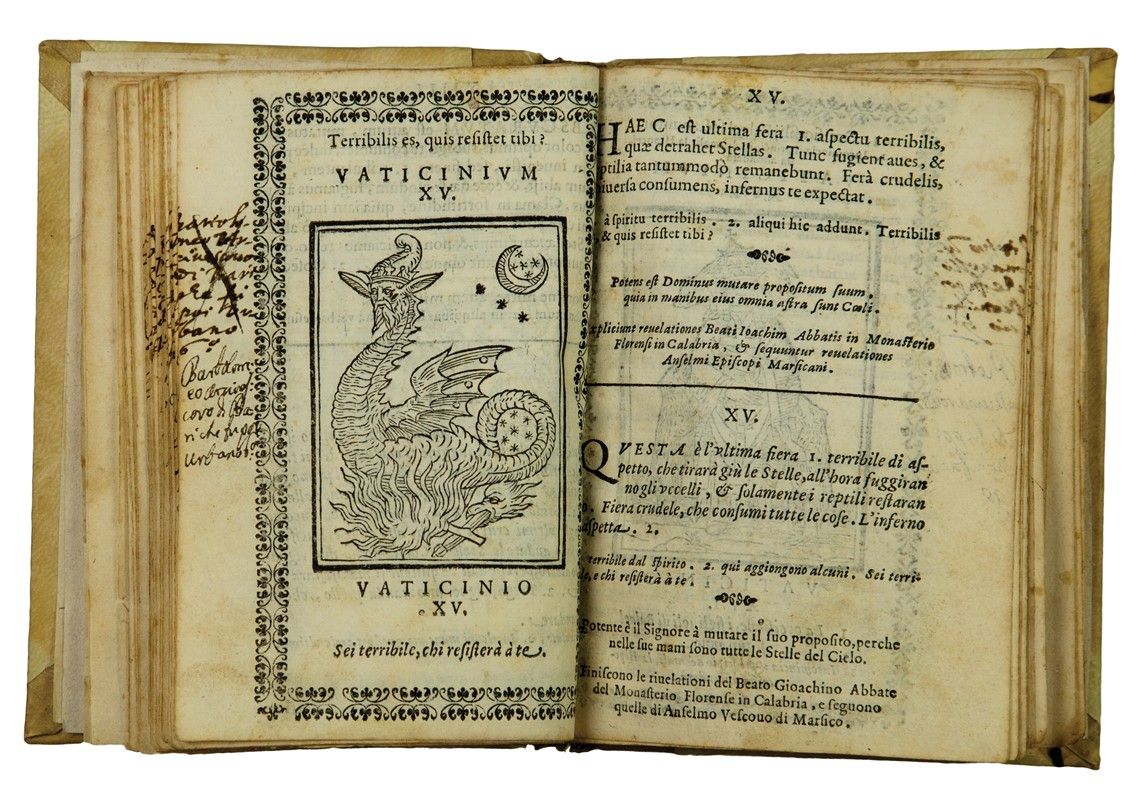 Terribilis es, quis resistet tibi?
VATICINIVM
XV.
VATICINIO
XV.
Sei terribile, chi resisterà à te.
urbano
Bartolom
eo
covo di Ba
ri che fugge
Urbano
XV.
HAEC eſt ultima fera 1. aſpectu terribilis,
quæ detrahet Stellas. Tunc fugient aues, &
ptilia tantummodò remanebunt. Ferà crudelis,
niuerſa conſumens, infernus te expectat.
à ſpiritu terribilis. 2. aliqui hic addunt. Terribilis
, & quis reſiſtet tibi?
Potens eſt Dominus mutare propoſitum ſuum,
quia in manibus eius omnia aſtra ſunt Cœli.
xpliciunt reuelationes Beati Ioachim Abbatis in Monaſterio
Florenſi in Calabria, & ſequuntur reuelationes
Anſelmi Epiſcopi Marſicani.
XV.
QVESTA è l'vltima fiera 1. terribile di aſ-
petto, che tirarà giù le Stelle, all'hora fuggiran
no gli vccelli, & ſolamente i reptili reſtaran
o. Fiera crudele, che conſumi tutte le coſe. L'inferno
aſpetta. 2.
terribile dal ſpirito. 2. qui aggiongono alcuni. Sei terri-
, e chi reſiſterà à te.
Potente è il Signore à mutare il ſuo propoſito, perche
nelle ſue mani ſono tutte le Stelle del Cielo.
Finiſcono le riuelationi del Beato Gioachino Abbate
del Monaſterio Florenſe in Calabria, e ſeguono
quelle di Anſelmo Veſcouo di Marſico.